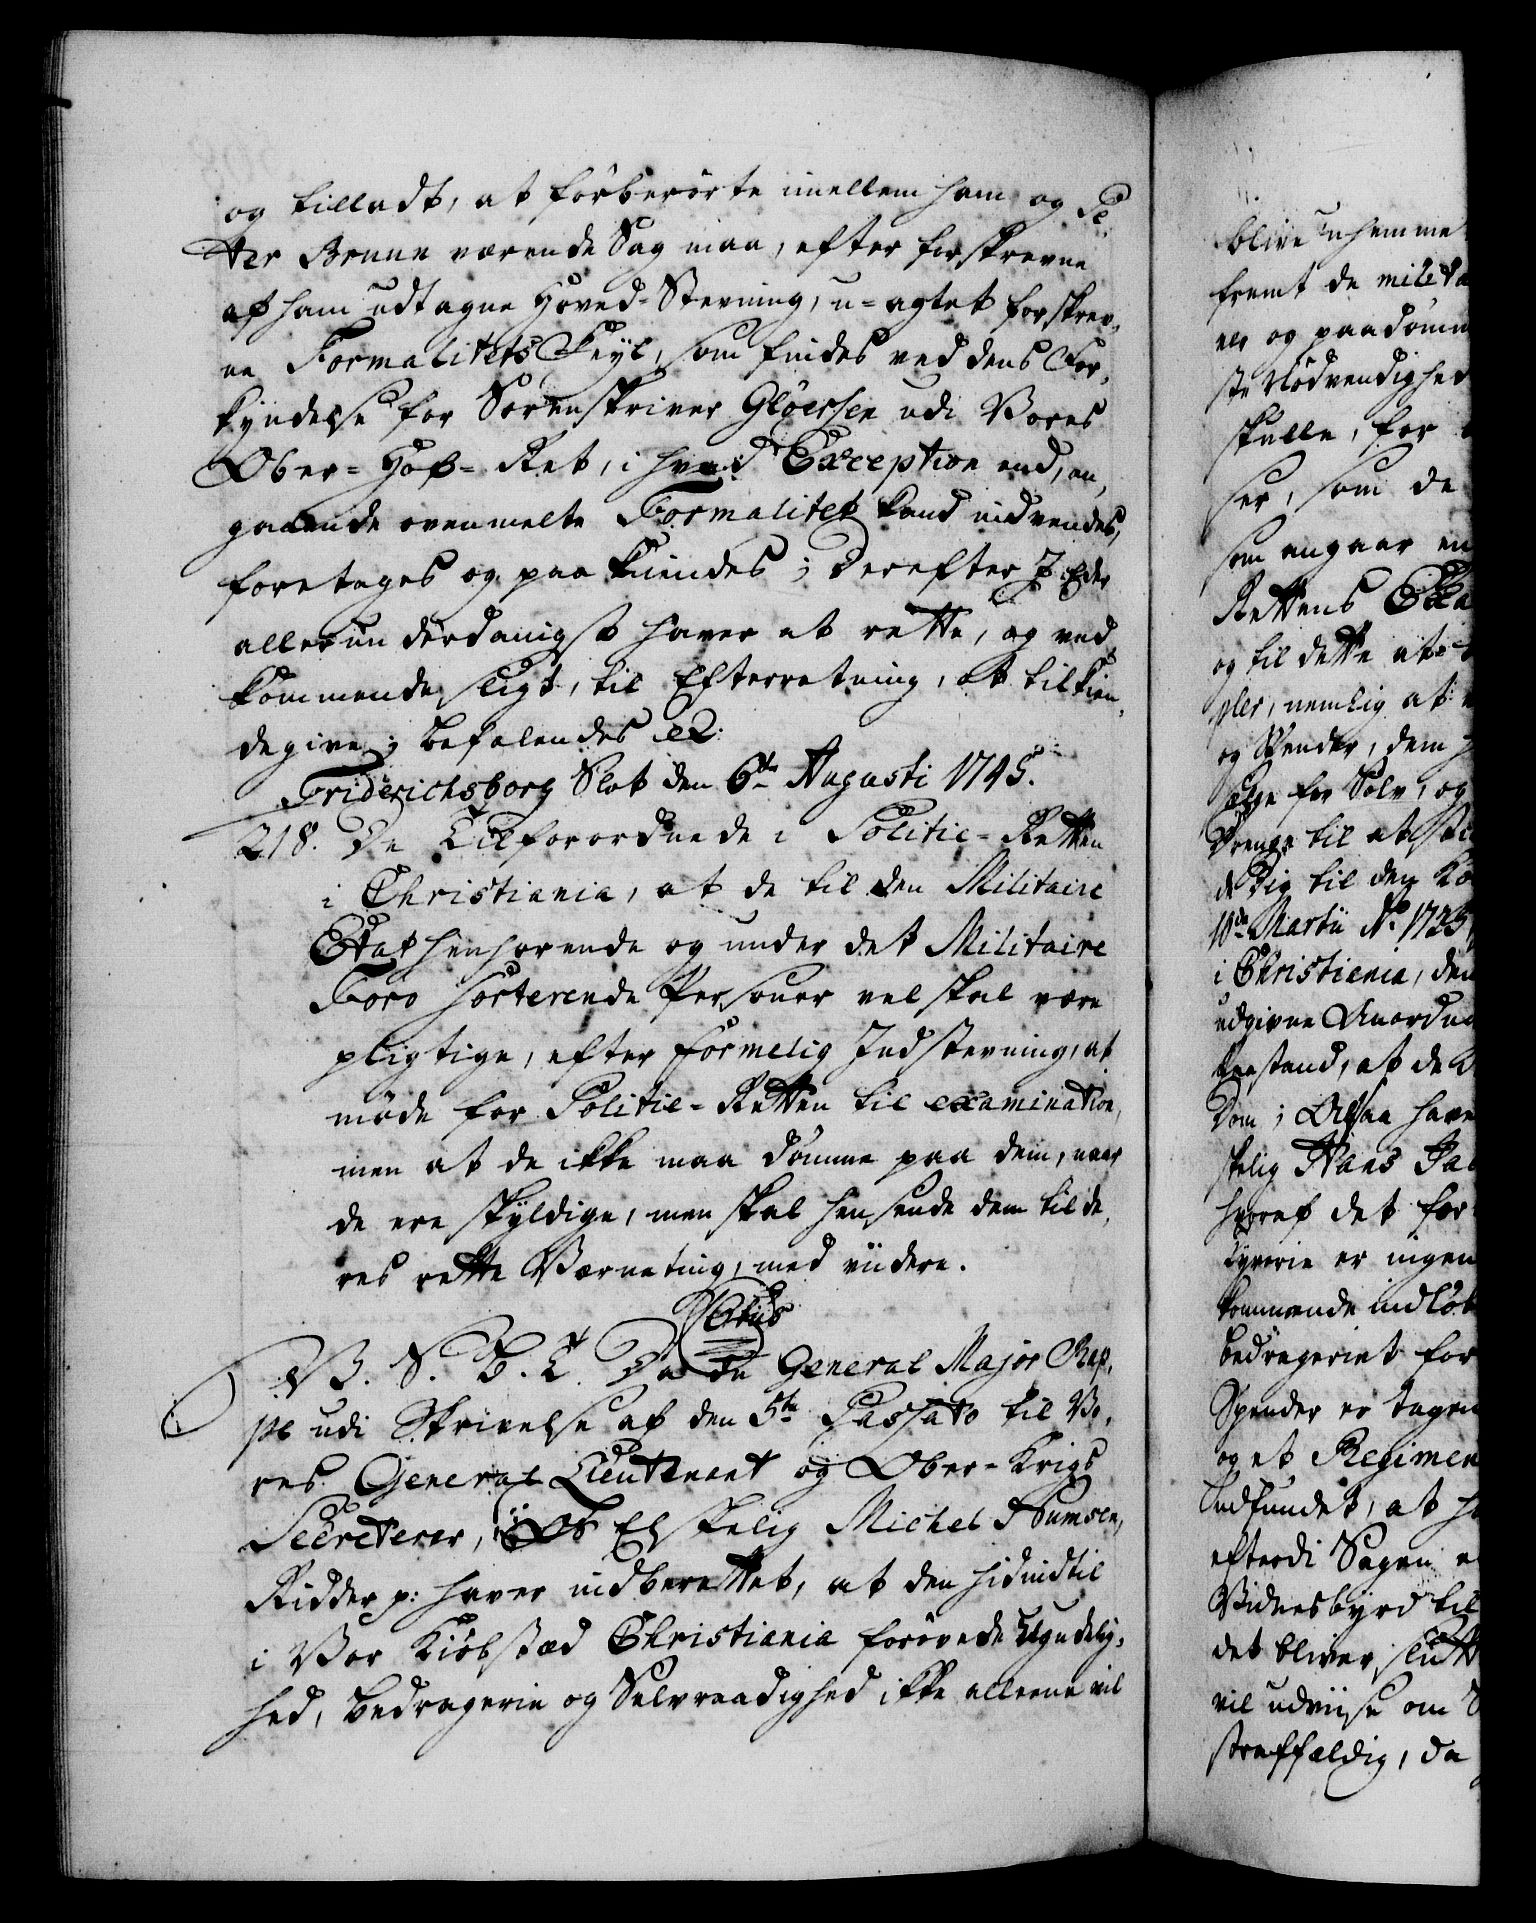 og tilladt, at forberörte imellem ham og Pe-
ter Brunn værende Sag maa, efter forskrevne
af ham udtagne Hoved-Stevning, u-agtet forskrev-
ne Formalitets Feyl, som findes ved dens For-
kyndelse for Sorenskriver Glöersen udi Vores
Ober-Hof-Ret, i hvad Exception end, an-
gaaende ovenmelte Formalitet kand indvendes,
foretages og paakiendes; Derefter I Eder
allerunderdanigst haver at rette, og ved-
kommende sligt, til Efterretning, at tilkien-
degive; befalendes etc:
Friderichsborg Slot den 6te Augusti 1745.
218. De Tilforordnede i Politie-Retten
i Christiania, at de til den Militaire
Etat henhörende og under det Militaire
Foro sorterende Personer vel skal være
pligtige, efter formelig Indstevning, at
möde for Politie-Retten til examination,
men at de ikke maa dömme paa dem, naar
de ere skyldige, men skal hensende dem til de-
res rette Værneting, med viidere.
C. 6tus
V. S. B. T. Da De General Major Rap-
pe udi Skrivelse af den 5te Passato til Vo-
res General Lieutenant og Ober-Krigs
Secreterer, Os Elskelig Michel Numsen,
Ridder p: haver indberettet, at den hidindtil
i Vor Kiöbstæd Christiania forövede Ugudelig-
hed, bedragerie og Selvraadighed ikke alleene vil
blive uhemme
fremt de milita
res og paadömm
ste Nödvendighed
skulle, for
ser, som de
som angaar en
Rettens Exa
og til dette at
pler, nemlig at
og Spender, dem
sælge for Sölv, og
Drenge til at stie
delig til den Kö
18de Martii Ao 1735
i Christiania, den
udgivne Anordn
tilstand, at de
Dom; Altsaa have
skelig Hans Jac
hvoraf det for
tyverie er ingen
kommende indlöb
bedrageriet for
Spender er tagen
og et Regimen
Indfundet, at h
efterdi Sagen e
Vidnesbyrd til
det bliver slutt
vil udviise om
straffældig, da